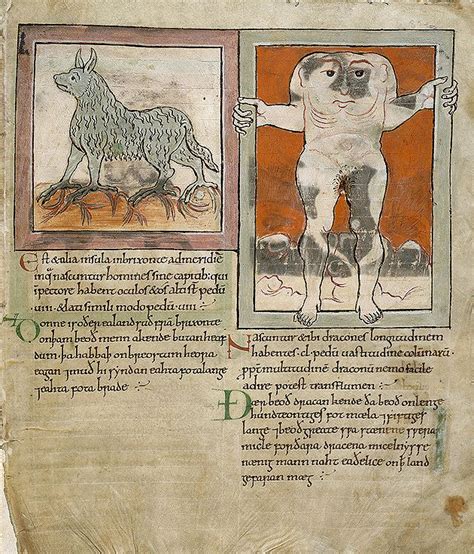 Est & alia insula inbrixonte admeridiē
inq nascuntur homines sine capitib; qui
ipectore habent oculos & os alti st pedū
. uiii . & lati simili modo pedū . uiii .
Ðonne is oðer ealand suð frā brixonte
onþam beoð menn akende butan heaf
dum þa habbaþ onbreostum heora
eagan 7 muð hi syndan eahta fota lange
7 eahta fota brade
Nascuntur & ibi dracones longitudinem
habentes .cl. pedū uastitudine columnarū.
ppt multitudinē draconū nemo facile
adire potest transflumen.
Ðær beoð dracan kende þa beoð onlenge
hundteontiges fot mæla 7 fiftiges
lange 7 beoð greate swa stænene sweras
micle for ðara dracena micelnysse
nænig mann naht eaðelice onꝥ land
gefaran mæg